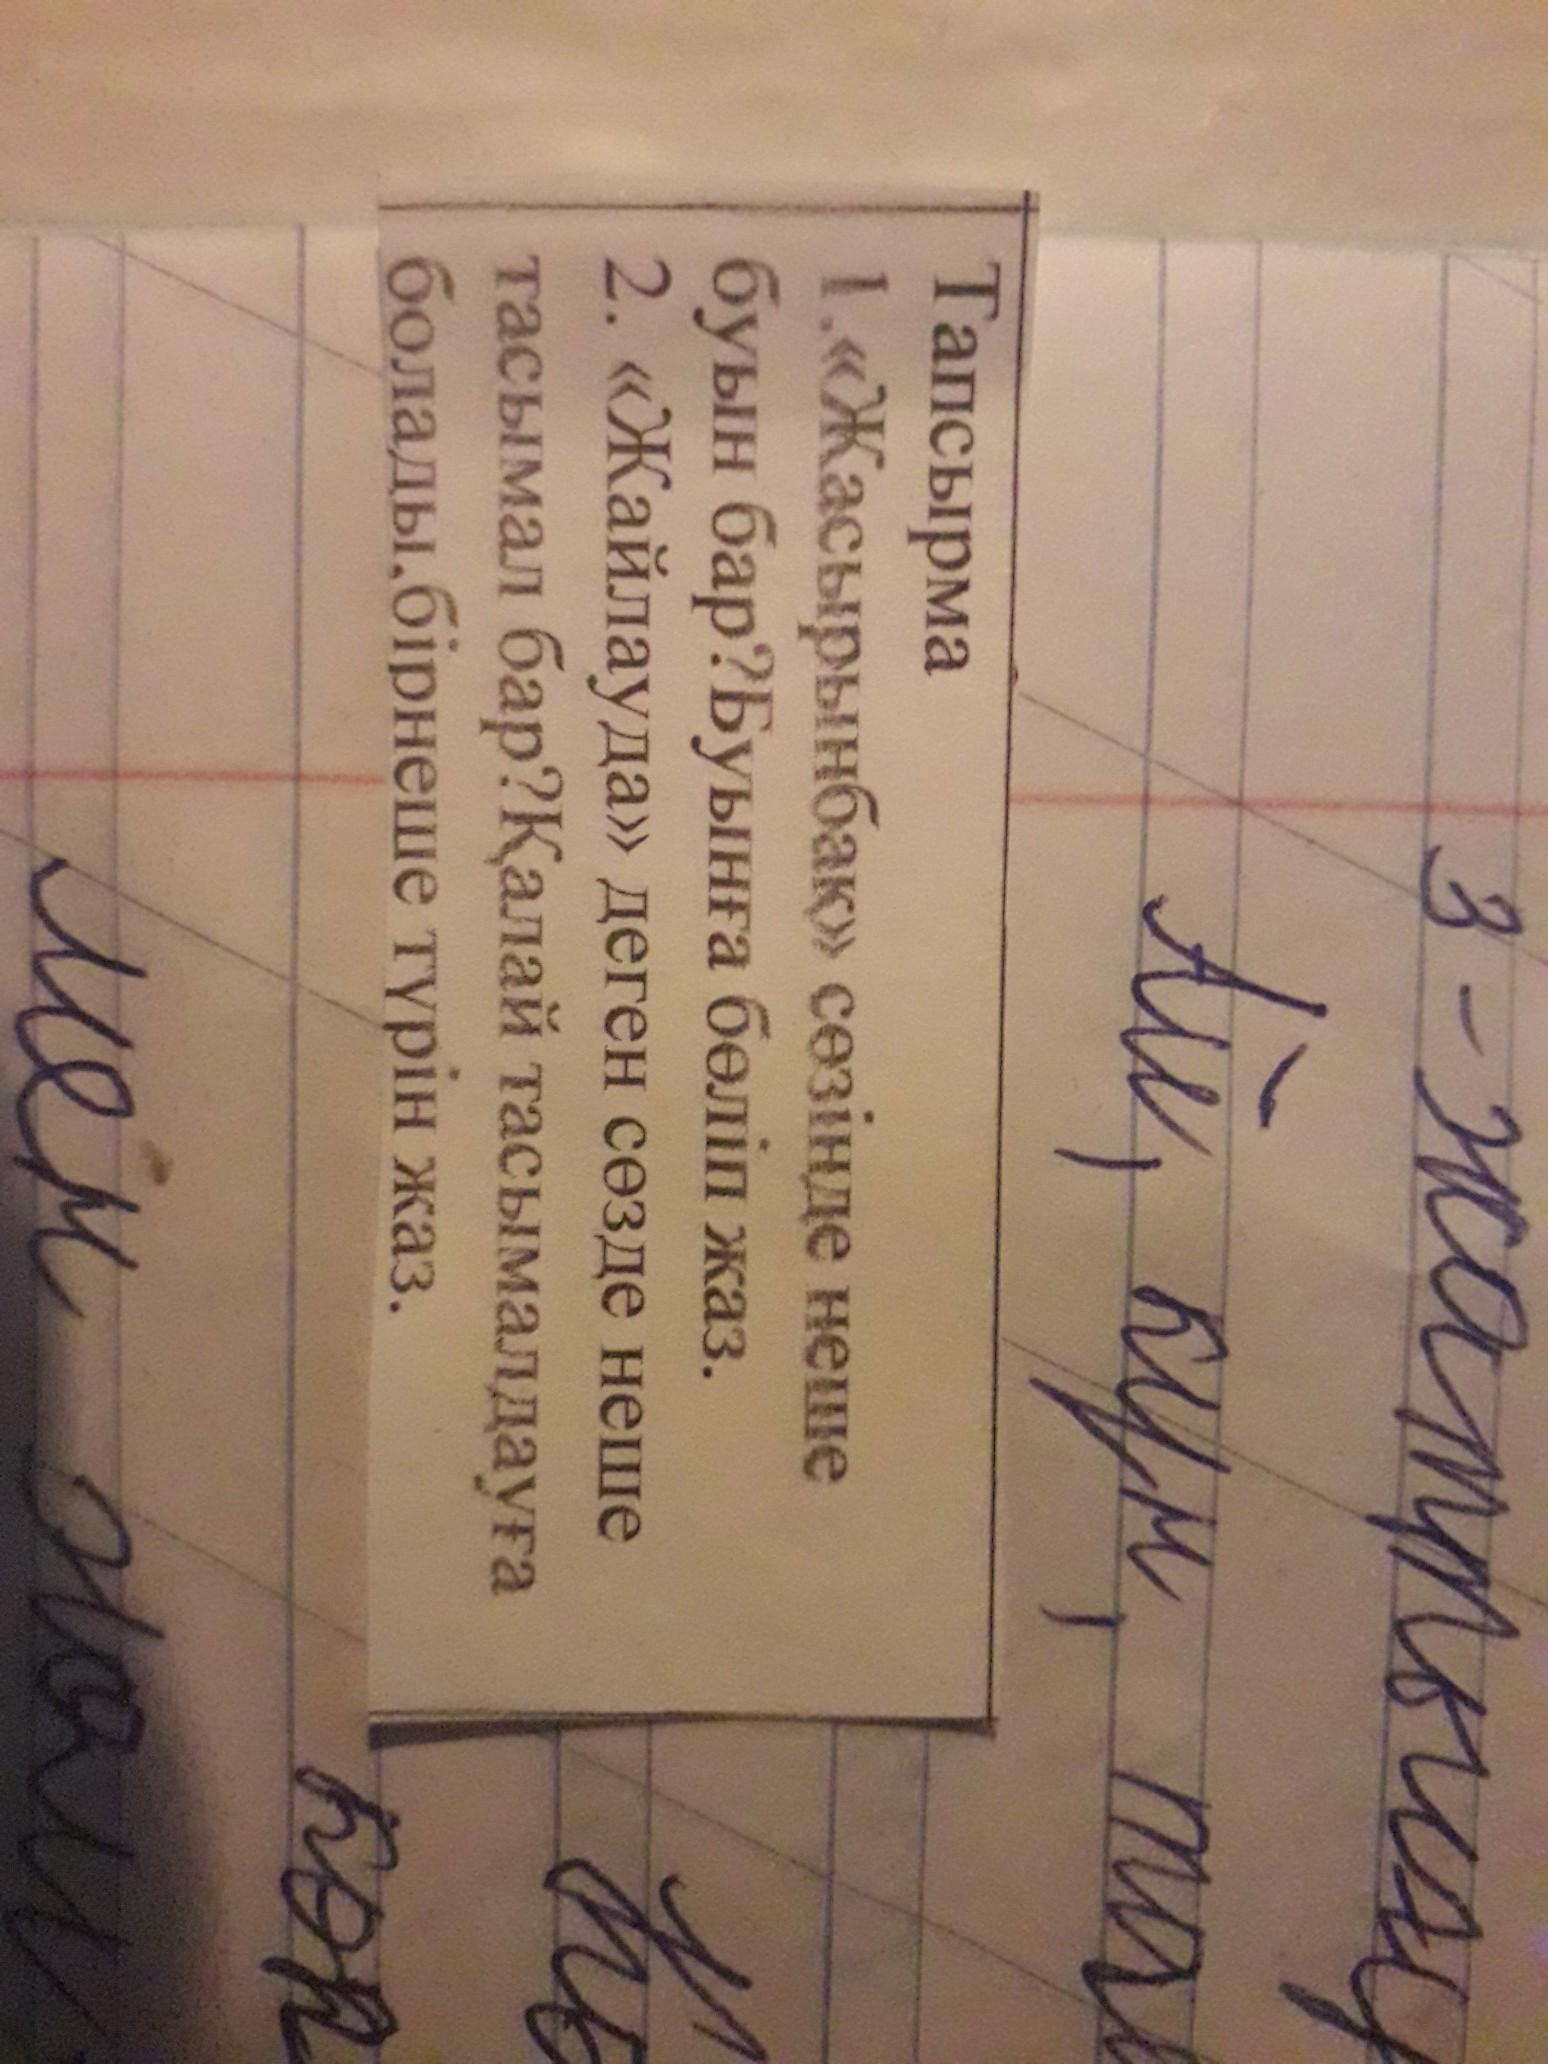 3-жаттығу
Ай, күн,
Тапсырма
1.«Жасырынбақ» сөзінде неше
буын бар?Буынға бөліп жаз.
2. «Жайлауда» деген сөзде неше
тасымал бар?Қалай тасымалдауға
болады.бірнеше түрін жаз.